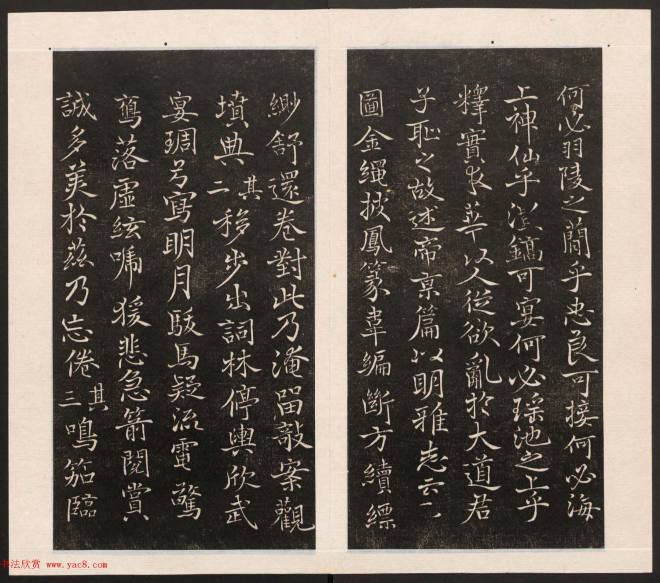 何必羽陵之蘭乎忠良可接何必海
上神仙乎灃鎬可宴何必瑤池之上乎
釋實求華以人從欲亂於大道君
子恥之故述帝京篇以明雅志云
圖金繩披鳳篆韋編斷方續縹
緲舒還卷對此乃淹留敲案觀
墳典其二移步出詞林停輿欣武
宴琱弓寫明月駿馬疑流電驚
鴈落虛弦啼猿悲急箭閱賞
誠多美於茲乃忘倦其三鳴笳臨
书法欣赏 www.yac8.com